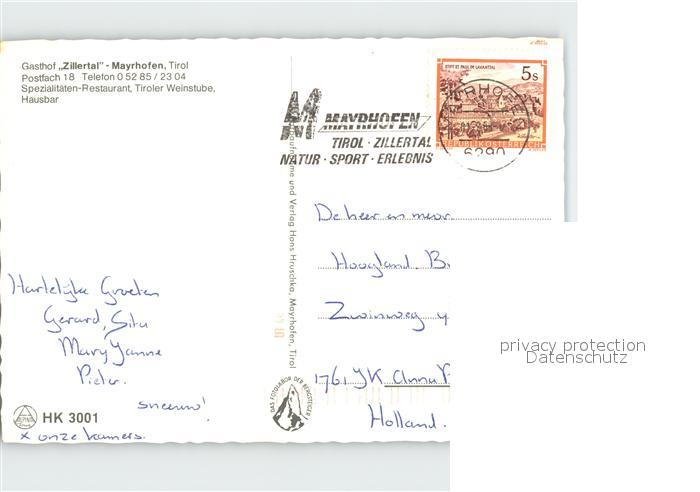 Gasthof „Zillertal" - Mayrhofen, Tirol
Postfach 18 Telefon 0 52 85 / 23 04
Spezialitäten-Restaurant, Tiroler Weinstube,
Hausbar
STIFT ST. PAUL IM LAVANTTAL
5 s
REPUBLIK ÖSTERREICH
6290
MAYRHOFEN
TIROL · ZILLERTAL
NATUR · SPORT · ERLEBNIS
Verlag Hans Hruschka, Mayrhofen, Tirol
De heer en mevr.
Hoogland
Zwinweg
1761 JK Anna P
Holland.
Hartelijke Groeten
Gerard, Sita
Mary Janne
Pieter.
DAS FOTOLABOR DER BERGSTEIGER
HK 3001
x onze kamers.
privacy protection
Datenschutz